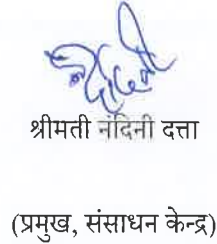 श्रीमती नंदिनी दत्ता
(प्रमुख, संसाधन केन्द्र)